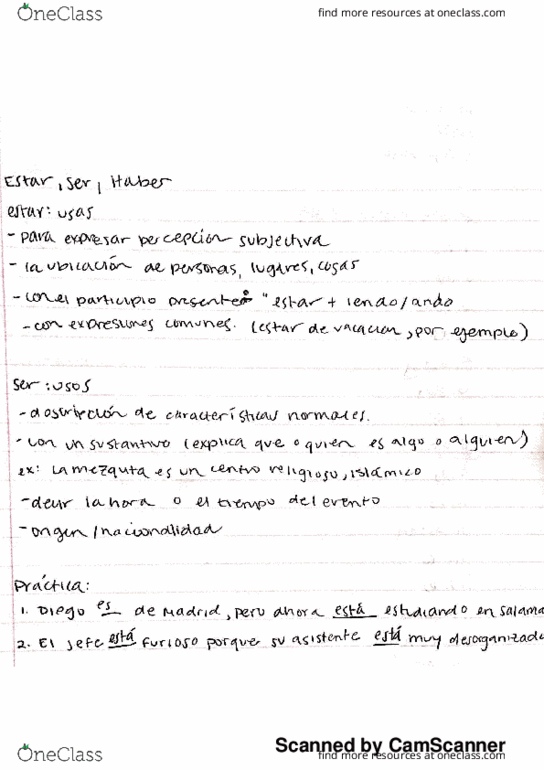 OneClass
find more resources at oneclass.com
Estar, Ser, Haber
estar: usas
- para expresar percepción subjectiva
- la ubicación de personas, lugares, cosas
- con el participio presente: "estar + iendo/ando
- con expresiones comunes. (estar de vacacion, por ejemplo)
ser: usos
- descripción de características normales.
- con un sustantivo (explica que o quien es algo o alguien)
ex: la mezquta es un centro religioso, islámico
- decir la hora o el tiempo del evento
- origen/nacionalidad
Práctica:
1. Diego es de Madrid, peru ahora está estudiando en salama
2. El jefe está furioso porque su asistente está muy desorganizado
Scanned by CamScanner
OneClass
find more resources at oneclass.com